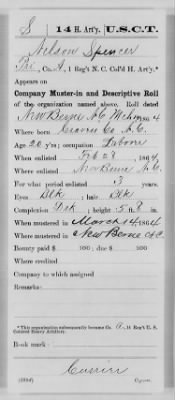 S | 14 H. Art'y. | U.S.C.T.
Nelson Spencer
Pri, Co. A, 1 Reg't N. C. Col'd H. Art'y.*
Appears on
Company Muster-in and Descriptive Roll
of the organization named above. Roll dated
New Berne N.C. Mch 14, 1864
Where born Craven Co. N.C.
Age 20 y'rs; occupation Laborer
When enlisted Feb 23, 1864
Where enlisted New Berne N.C.
For what period enlisted 3 years.
Eyes Blk; hair Blk
Complexion Drk; height 5 ft. 8 in.
When mustered in March 14, 1864
Where mustered in New Berne N.C.
Bounty paid $ 100; due $ 100
Where credited
Company to which assigned
Remarks:
*This organization subsequently became Co. A, 14 Reg't U. S.
Colored Heavy Artillery.
Book mark:
Currier
Copyist.